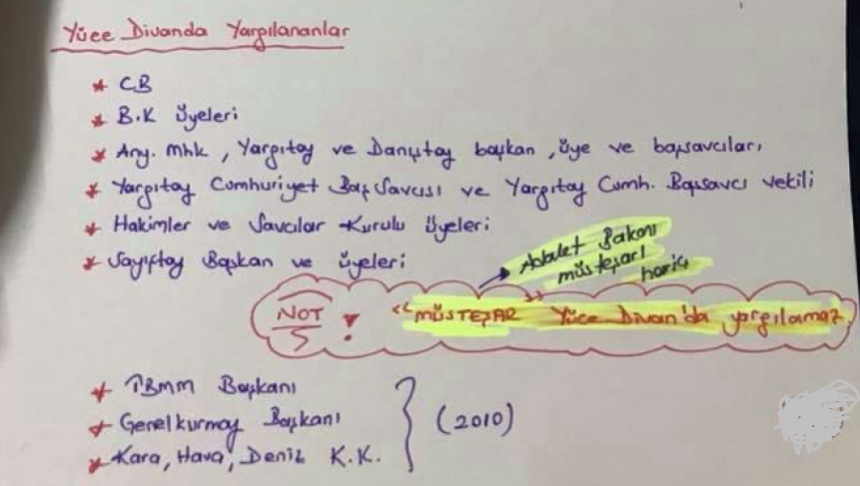 Yüce Divanda Yargılananlar
* CB
* B.K Üyeleri
* Any. Mhk, Yargıtay ve Danıştay başkan, üye ve başsavcıları
* Yargıtay Cumhuriyet Baş Savcısı ve Yargıtay Cumh. Başsavcı vekili
* Hakimler ve Savcılar Kurulu Üyeleri
* Sayıştay Başkan ve üyeleri
→ Adalet Bakanı
müsteşarı
hariç
NOT ! "MÜSTEŞAR Yüce Divan'da yargılamaz
* TBMM Başkanı
* Genelkurmay Başkanı } (2010)
* Kara, Hava, Deniz K.K.